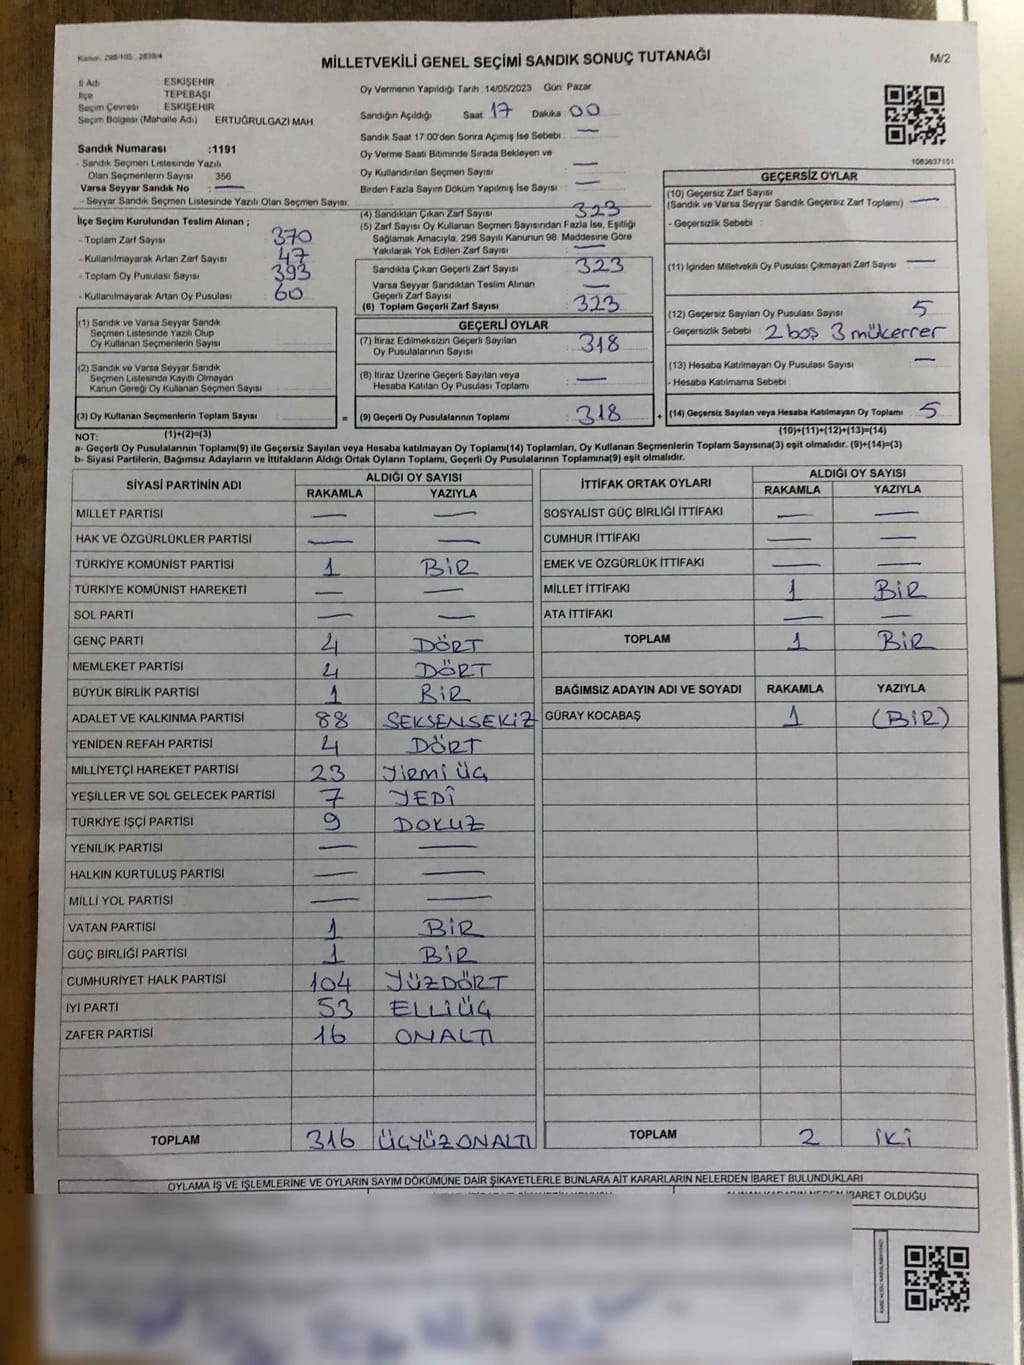 Kanun: 298/105 , 2839/4
MİLLETVEKİLİ GENEL SEÇİMİ SANDIK SONUÇ TUTANAĞI
M/2
İl Adı ESKİŞEHİR
İlçe TEPEBAŞI
Seçim Çevresi ESKİŞEHİR
Seçim Bölgesi (Mahalle Adı) ERTUĞRULGAZİ MAH.
Sandık Numarası :1191
- Sandık Seçmen Listesinde Yazılı
Olan Seçmenlerin Sayısı 356
Varsa Seyyar Sandık No : —
- Seyyar Sandık Seçmen Listesinde Yazılı Olan Seçmen Sayısı:
Oy Vermenin Yapıldığı Tarih :14/05/2023 Gün: Pazar
Sandığın Açıldığı Saat 17 Dakika 00
Sandık Saat 17:00'den Sonra Açımış İse Sebebi : —
Oy Verme Saati Bitiminde Sırada Bekleyen ve
Oy Kullandırılan Seçmen Sayısı : —
Birden Fazla Sayım Döküm Yapılmış İse Sayısı : —
1083637151
İlçe Seçim Kurulundan Teslim Alınan ;
- Toplam Zarf Sayısı 370
- Kullanılmayarak Artan Zarf Sayısı : 47
- Toplam Oy Pusulası Sayısı : 393
- Kullanılmayarak Artan Oy Pusulası : 60
(1) Sandık ve Varsa Seyyar Sandık
Seçmen Listesinde Yazılı Olup
Oy Kullanan Seçmenlerin Sayısı :
(2) Sandık ve Varsa Seyyar Sandık
Seçmen Listesinde Kayıtlı Olmayan
Kanun Gereği Oy Kullanan Seçmen Sayısı :
(3) Oy Kullanan Seçmenlerin Toplam Sayısı :
(1)+(2)=(3)
(4) Sandıktan Çıkan Zarf Sayısı : 323
(5) Zarf Sayısı Oy Kullanan Seçmen Sayısından Fazla İse, Eşitliği
Sağlamak Amacıyla, 298 Sayılı Kanunun 98. Maddesine Göre
Yakılarak Yok Edilen Zarf Sayısı : —
Sandıkta Çıkan Geçerli Zarf Sayısı : 323
Varsa Seyyar Sandıktan Teslim Alınan
Geçerli Zarf Sayısı : —
(6) Toplam Geçerli Zarf Sayısı : 323
GEÇERLİ OYLAR
(7) İtiraz Edilmeksizin Geçerli Sayılan
Oy Pusulalarının Sayısı : 318
(8) İtiraz Üzerine Geçerli Sayılan veya
Hesaba Katılan Oy Pusulası Toplamı : —
= (9) Geçerli Oy Pusulalarının Toplamı : 318 +
GEÇERSİZ OYLAR
(10) Geçersiz Zarf Sayısı
(Sandık ve Varsa Seyyar Sandık Geçersiz Zarf Toplamı) : —
- Geçersizlik Sebebi :
(11) İçinden Milletvekili Oy Pusulası Çıkmayan Zarf Sayısı : —
(12) Geçersiz Sayılan Oy Pusulası Sayısı : 5
- Geçersizlik Sebebi : 2 boş 3 mükerrer
(13) Hesaba Katılmayan Oy Pusulası Sayısı : —
- Hesaba Katılmama Sebebi :
(14) Geçersiz Sayılan veya Hesaba Katılmayan Oy Toplamı : 5
(10)+(11)+(12)+(13)=(14)
NOT:
a- Geçerli Oy Pusulalarının Toplamı(9) ile Geçersiz Sayılan veya Hesaba katılmayan Oy Toplamı(14) Toplamları, Oy Kullanan Seçmenlerin Toplam Sayısına(3) eşit olmalıdır. (9)+(14)=(3)
b- Siyasi Partilerin, Bağımsız Adayların ve İttifakların Aldığı Ortak Oyların Toplamı, Geçerli Oy Pusulalarının Toplamına(9) eşit olmalıdır.
SİYASİ PARTİNİN ADI ALDIĞI OY SAYISI
RAKAMLA YAZIYLA
MİLLET PARTİSİ — —
HAK VE ÖZGÜRLÜKLER PARTİSİ — —
TÜRKİYE KOMÜNİST PARTİSİ 1 BİR
TÜRKİYE KOMÜNİST HAREKETİ — —
SOL PARTİ — —
GENÇ PARTİ 4 DÖRT
MEMLEKET PARTİSİ 4 DÖRT
BÜYÜK BİRLİK PARTİSİ 1 BİR
ADALET VE KALKINMA PARTİSİ 88 SEKSENSEKİZ
YENİDEN REFAH PARTİSİ 4 DÖRT
MİLLİYETÇİ HAREKET PARTİSİ 23 YİRMİ ÜÇ
YEŞİLLER VE SOL GELECEK PARTİSİ 7 YEDİ
TÜRKİYE İŞÇİ PARTİSİ 9 DOKUZ
YENİLİK PARTİSİ — —
HALKIN KURTULUŞ PARTİSİ — —
MİLLİ YOL PARTİSİ — —
VATAN PARTİSİ 1 BİR
GÜÇ BİRLİĞİ PARTİSİ 1 BİR
CUMHURİYET HALK PARTİSİ 104 YÜZDÖRT
İYİ PARTİ 53 ELLİÜÇ
ZAFER PARTİSİ 16 ONALTI
TOPLAM 316 ÜÇYÜZONALTI
İTTİFAK ORTAK OYLARI ALDIĞI OY SAYISI
RAKAMLA YAZIYLA
SOSYALİST GÜÇ BİRLİĞİ İTTİFAKI — —
CUMHUR İTTİFAKI — —
EMEK VE ÖZGÜRLÜK İTTİFAKI — —
MİLLET İTTİFAKI 1 BİR
ATA İTTİFAKI — —
TOPLAM 1 BİR
BAĞIMSIZ ADAYIN ADI VE SOYADI RAKAMLA YAZIYLA
GÜRAY KOCABAŞ 1 (BİR)
TOPLAM 2 İKİ
OYLAMA İŞ VE İŞLEMLERİNE VE OYLARIN SAYIM DÖKÜMÜNE DAİR ŞİKAYETLERLE BUNLARA AİT KARARLARIN NELERDEN İBARET BULUNDUKLARI
İBARET OLDUĞU